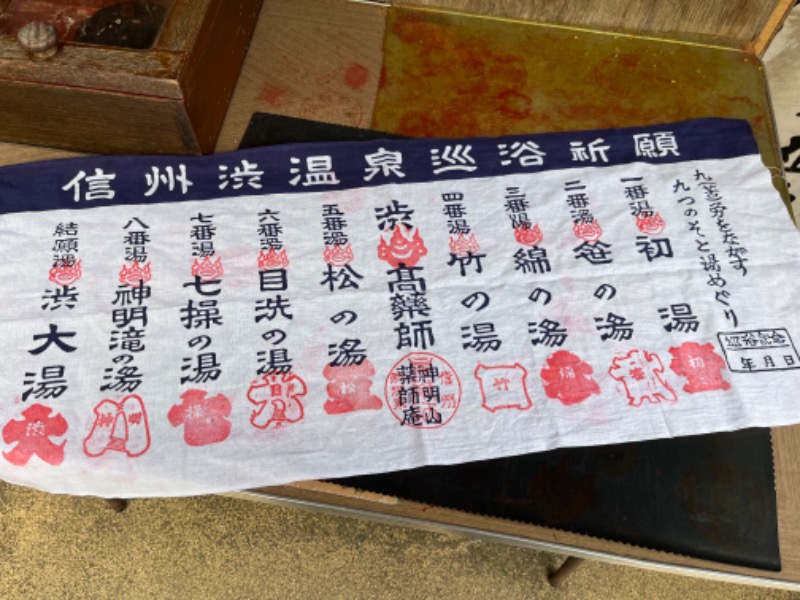 信州渋温泉巡浴祈願
九苦厄労をながす
九つのそと湯めぐり
巡浴記念
年月日
一番湯 初湯
初
二番湯 笹の湯
笹
三番湯 綿の湯
綿
四番湯 竹の湯
竹
渋高薬師
神明山
薬師庵
五番湯 松の湯
松
六番湯 目洗の湯
七番湯 七操の湯
操
八番湯 神明滝の湯
結願湯 渋大湯
渋